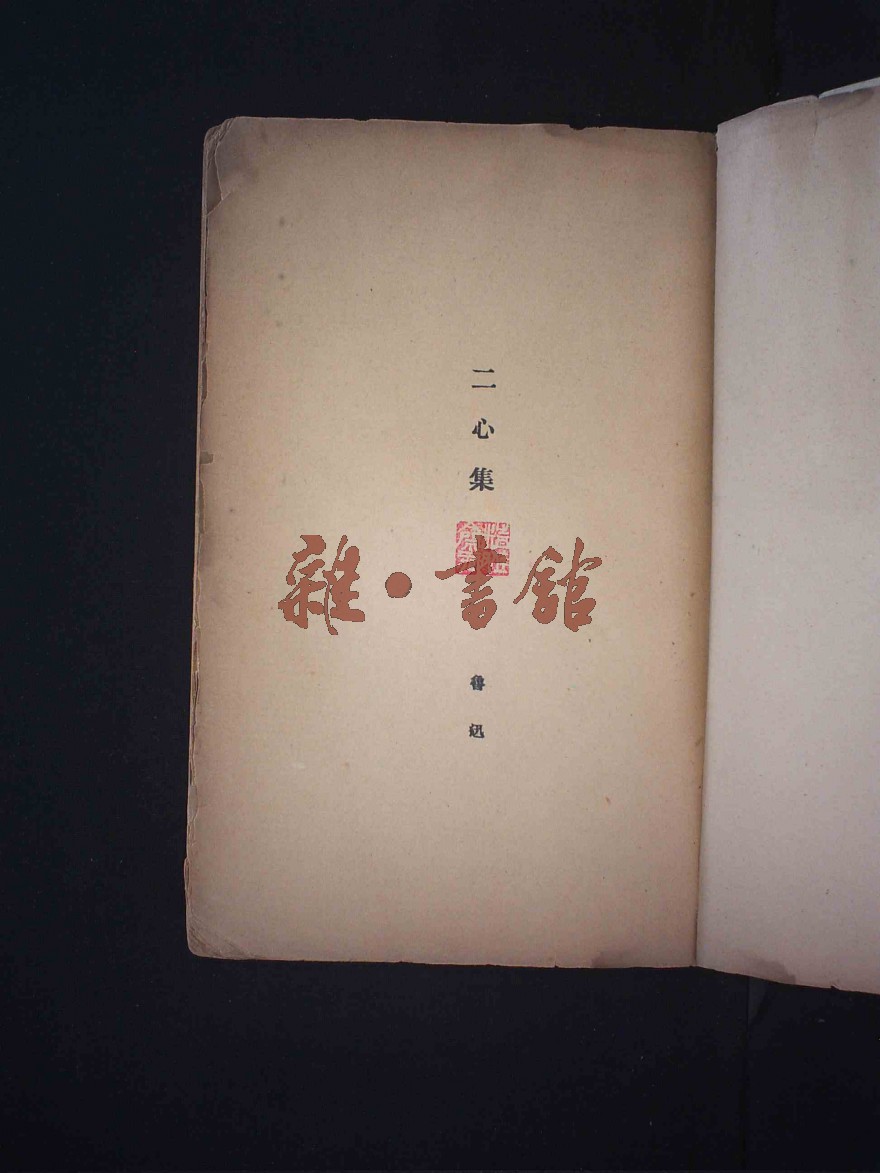 二心集
雜·書館
魯迅